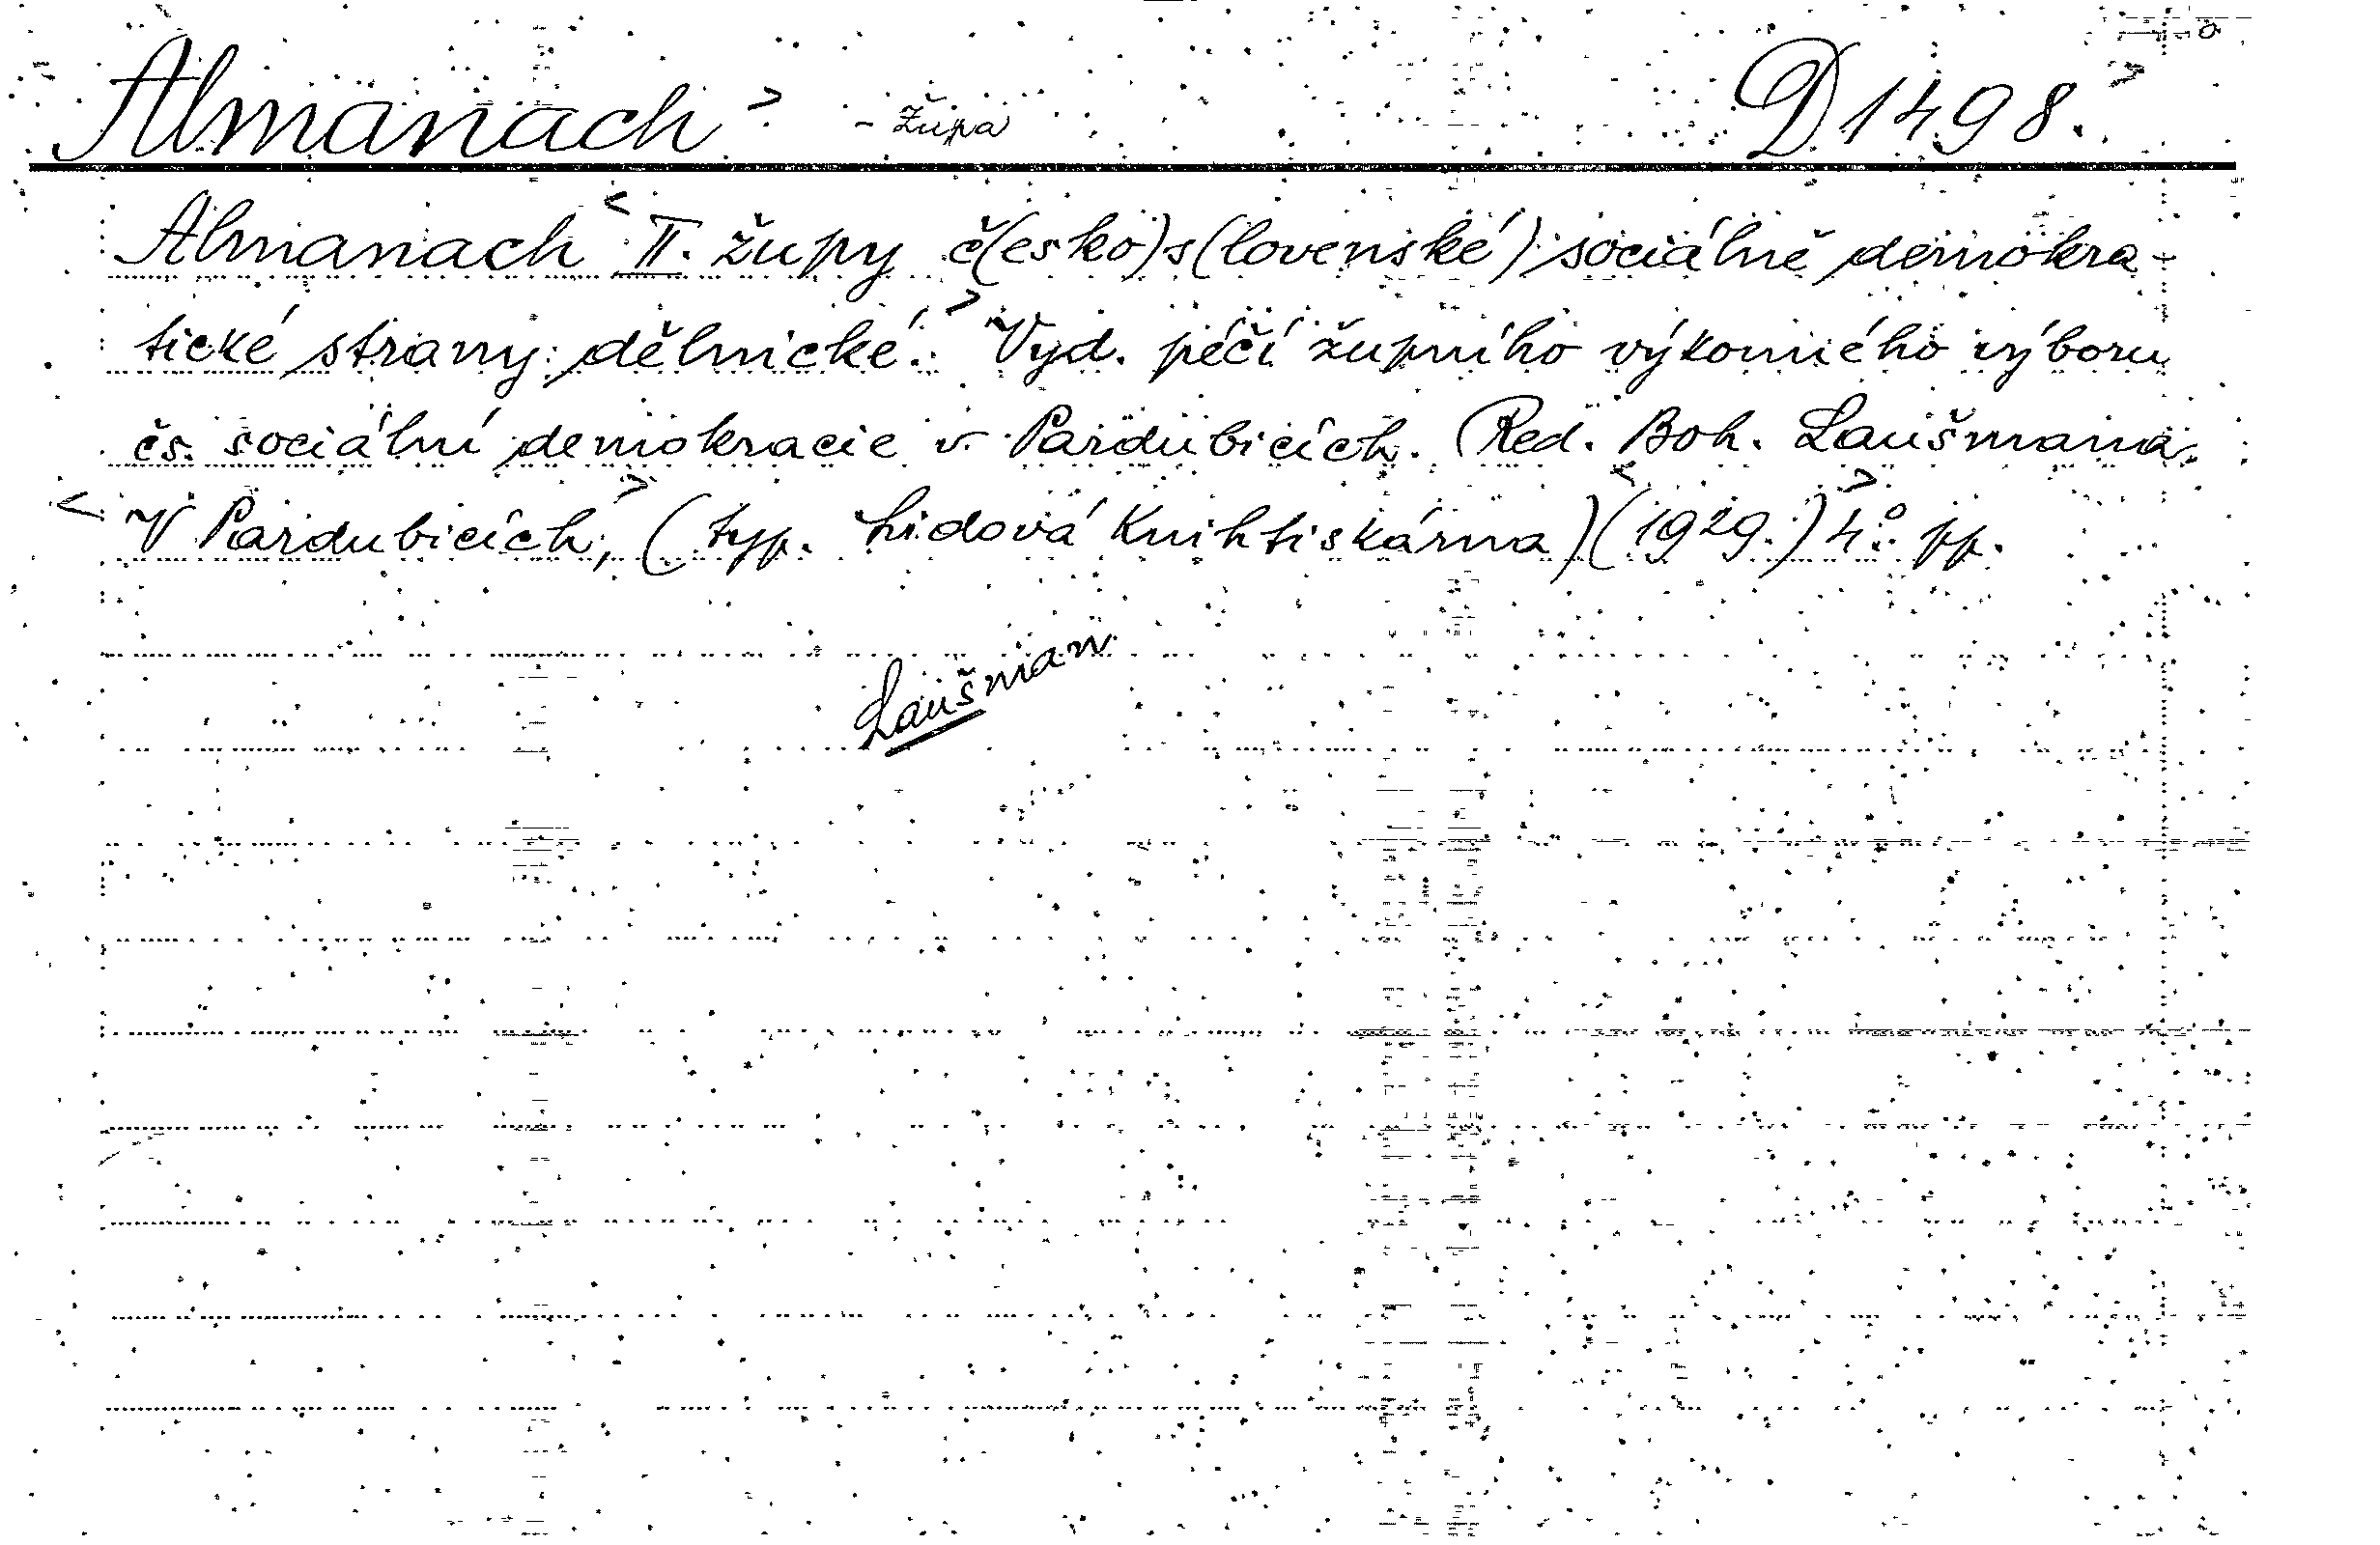 Almanach > - župa D 1498. >
Almanach < II. župy č(esko)s(lovenské) sociálně demokra-
tické strany dělnické. > Vyd. péčí župního výkonného výboru
čs. sociální demokracie v Pardubicích. Red. Boh. Laušmana.
< V Pardubicích, > (typ. Lidová knihtiskárna) < (1929.) > 4.° pp.
Laušman